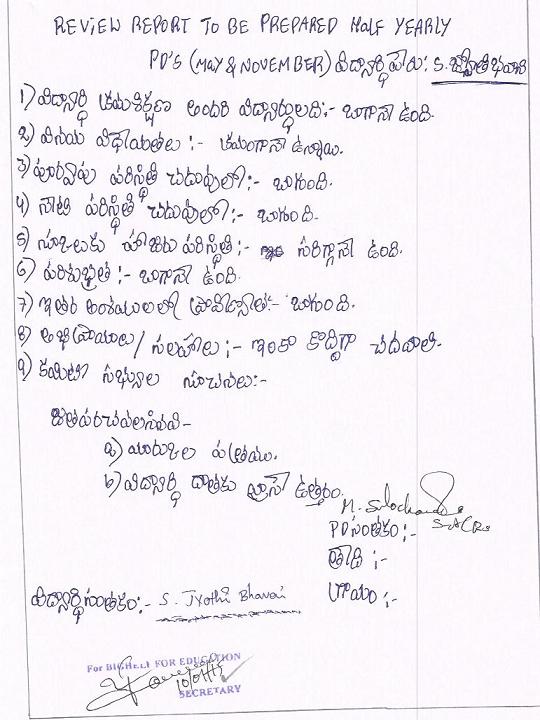 REVIEW REPORT TO BE PREPARED HALF YEARLY
PD'S (MAY & NOVEMBER) విద్యార్థి పేరు: S. జ్యోతి భవాని
1) విద్యార్థి క్రమశిక్షణ అందరి విద్యార్థులది:- బాగానే ఉంది.
2) వినయ విధేయతలు :- క్రమంగానే ఉన్నాయి.
3) పూర్వపు పరిస్థితి చదువులో:- బాగుంది.
4) నేటి పరిస్థితి చదువులో:- బాగుంది.
5) స్కూలుకు హాజరు పరిస్థితి:- సరిగ్గానే ఉంది.
6) పరిశుభ్రత :- బాగానే ఉంది.
7) ఇతర అంశములలో ప్రావీణ్యత:- బాగుంది.
8) అభిప్రాయాలు/ సలహాలు :- ఇంకా కొద్దిగా చదవాలి.
9) కమిటీ సభ్యుల సూచనలు:-
జతపరచవలసినవి-
a) మార్కుల పత్రము.
b) విద్యార్థి దాతకు వ్రాసే ఉత్తరం.
PD సంతకం:-
తేది :-
గ్రామం :-
విద్యార్థి సంతకం:- S. Jyothi Bhavani
For BIGHELP FOR EDUCATION
SECRETARY